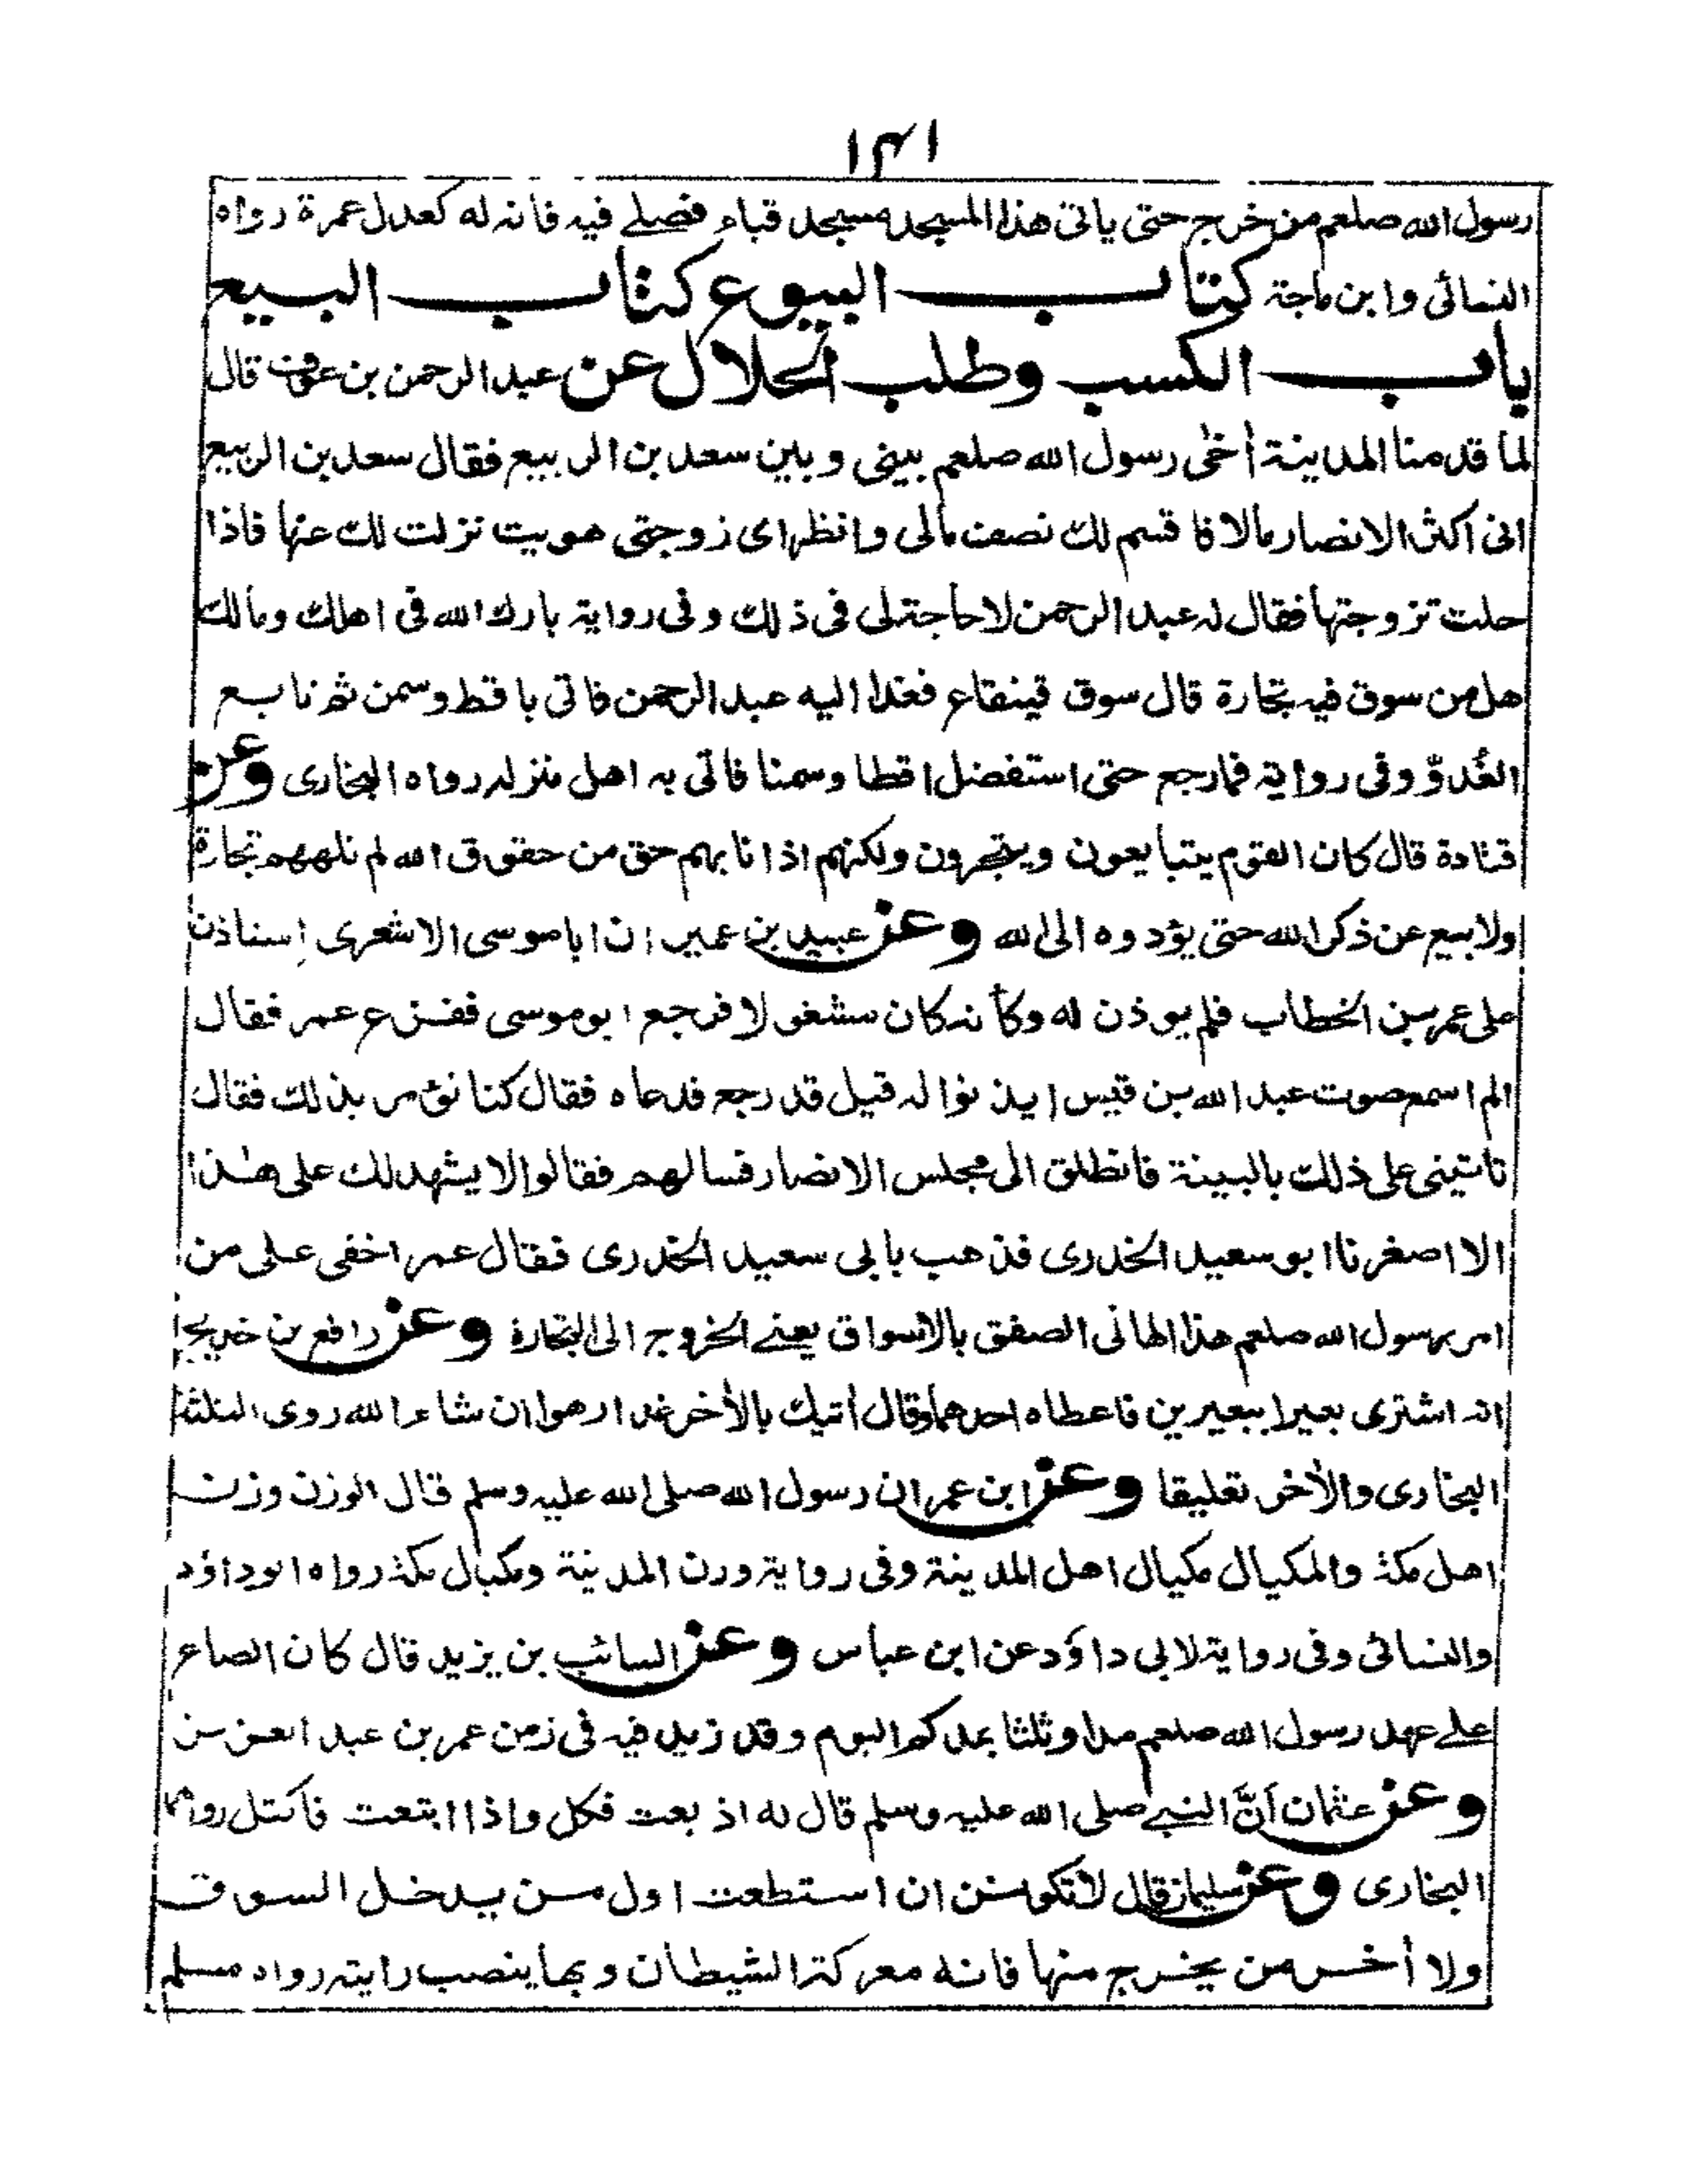 ١٤١
رسول الله صلعم من خرج حتى ياتى هذا المسجد مسجد قباء فصلے فيه فانه له كعدل عمرة رواه
النسائى وابن ماجة كتاب البيوع كتاب البيع
باب الكسب وطلب الحلال عن عبد الرحمن بن عوف قال
لما قدمنا المدينة أخى رسول الله صلعم بينى وبين سعد بن الربيع فقال سعد بن الربيع
انى اكثر الانصار مالا فاقسم لك نصف مالى وانظر اى زوجتى هويت نزلت لك عنها فاذا
حلت تزوجتها فقال له عبد الرحمن لا حاجة لى فى ذلك وفى رواية بارك الله فى اهلك ومالك
هل من سوق فيه تجارة قال سوق قينقاع فغدا اليه عبد الرحمن فاتى باقط وسمن ثم تابع
الغُدوّ وفى رواية فما رجع حتى استفضل اقطا وسمنا فاتى به اهل منزله رواه البخارى وعن
قتادة قال كان القوم يتبايعون ويتجرون ولكنهم اذا نابهم حق من حقوق الله لم تلههم تجارة
ولا بيع عن ذكر الله حتى يؤدوه الى الله وعن عبيد بن عمير ان ابا موسى الاشعرى استاذن
على عمر بن الخطاب فلم يوذن له وكأنه كان مشغولا فرجع ابو موسى ففزع عمر فقال
الم اسمع صوت عبد الله بن قيس ايذنوا له قيل قد رجع فدعاه فقال كنا نؤمر بذلك فقال
تاتينى على ذلك بالبينة فانطلق الى مجلس الانصار فسالهم فقالوا لا يشهد لك على هذا
الا اصغرنا ابو سعيد الخدرى فذهب بابى سعيد الخدرى فقال عمر اخفى على من
امر رسول الله صلعم هذا الهانى الصفق بالاسواق يعنے الخروج الى التجارة وعن رافع بن خديج
انه اشترى بعيرا ببعيرين فاعطاه احدهما وقال أتيك بالأخر غدا رهوا ان شاء الله روى الثلثة
البخارى والأخر تعليقا وعن ابن عمر ان رسول الله صلى الله عليه وسلم قال الوزن وزن
اهل مكة والمكيال مكيال اهل المدينة وفى رواية وزن المدينة ومكيال مكة رواه ابوداؤد
والنسائى وفى رواية لابى داؤد عن ابن عباس وعن السائب بن يزيد قال كان الصاع
علے عهد رسول الله صلعم مدا وثلثا بمدكم اليوم وقد زيد فيه فى زمن عمر بن عبد العزيز
وعن عثمان أنّ النبے صلى الله عليه وسلم قال له اذ بعت فكل واذا ابتعت فاكتل رواهما
البخارى وعن سليمان قال لا تكونن ان استطعت اول من يدخل السوق
ولا أخر من يخرج منها فانه معركة الشيطان وبها ينصب رايته رواه مسلم